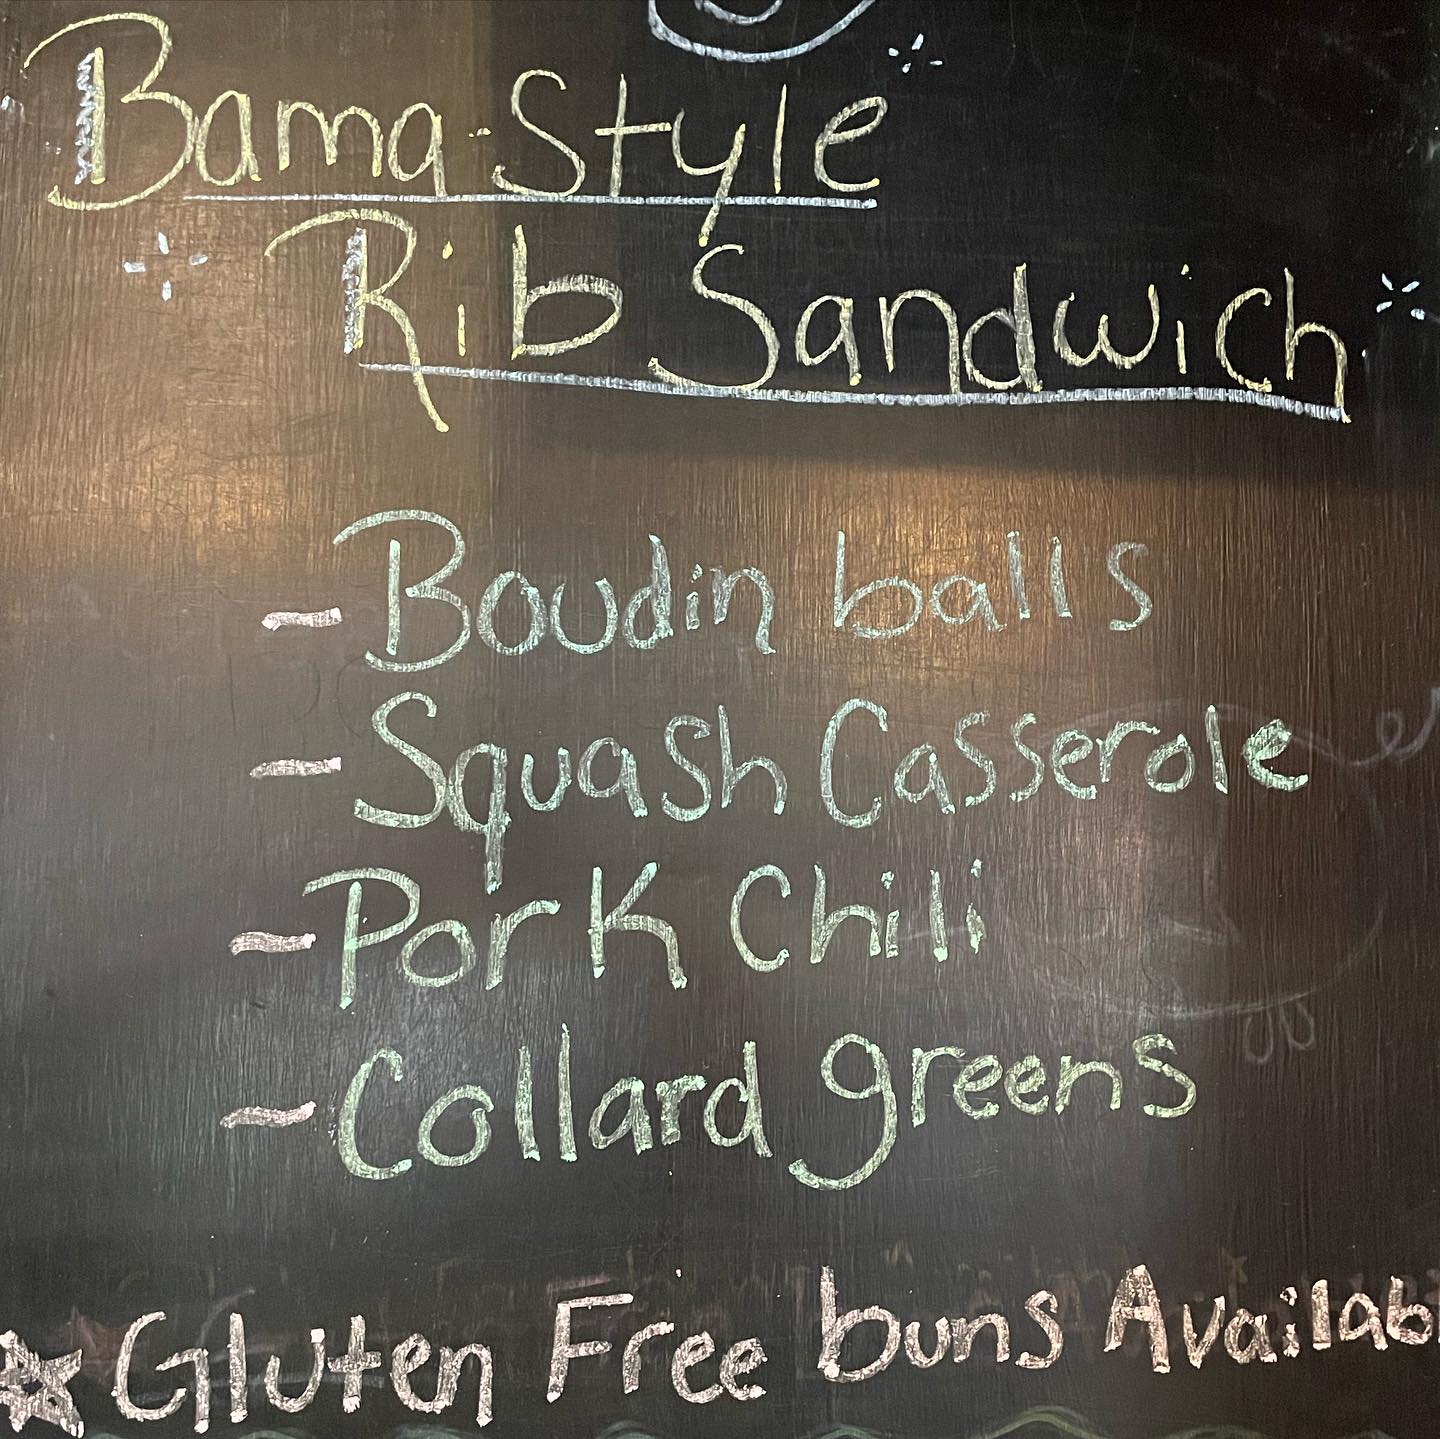 Bama-Style
Rib Sandwich
- Boudin balls
- Squash Casserole
- Pork Chili
- Collard greens
Gluten Free buns Availabl